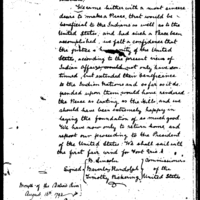 We came hither with a most sincere
desire to make a Peace, that would be
beneficial to the Indians as well as to the
United States, and had such a Peace been
accomplished, we felt a confidence that
the justice & of the United
States, according to the present views of
Indian Affairs, would not only have con-
firmed, but extended their beneficence
to the Indian Nations and safe as
guarded upon them would have rendered
the Peace as lasting as the hills, and we
should have been extremely happy in
laying the foundation of so much good.
We have now only to return home and
report our proceeding to the President
of the United States. We shall sail with
the first fair wind for Fort Erie
B. Lincoln Commissioners
Signed Beverley Randolph of the
Timothy Pickering United States
Mouth of the Detroit River
August 16th 1793